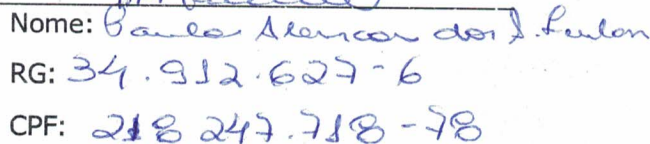 Nome: Paulo Alencar dos S.
RG: 34.912.627-6
CPF: 218 247.718-78